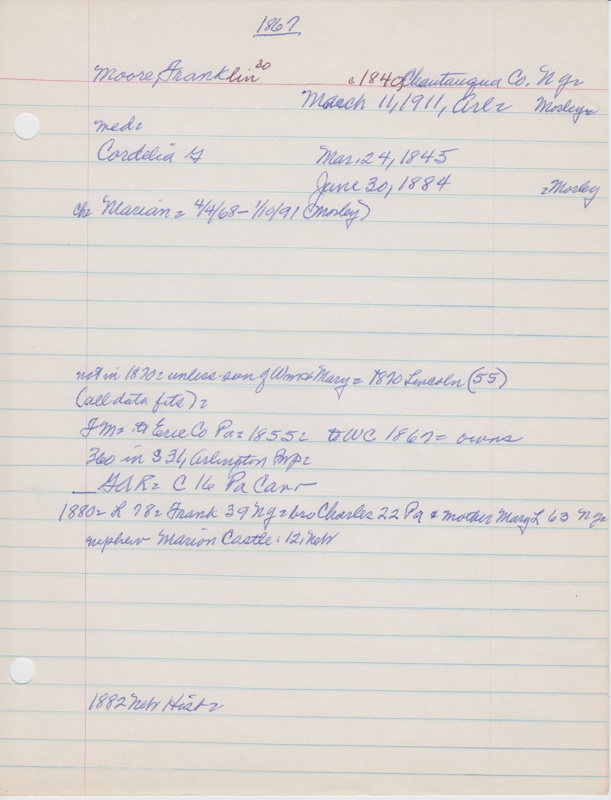 1867
Moore, Franklin 30 c 1840, Chautauqua Co, N Y=
March 11, 1911, Arl= Mosley=
med=
Cordelia G Mar. 24, 1845
June 30, 1884 =Mosley
ch= Marian = 4/4/68 - 1/10/91 (Mosley)
not in 1870= unless son of Wm & Mary = 1870 Lincoln (55)
(all data fits)=
FM= to Erie Co Pa= 1855= to WC 1867= owns
360 in S 31, Arlington Twp=
GAR= C 16 Pa Cav
1880= L 78= Frank 39 Ny= bro Charles 22 Pa & mother Mary L 63 Ny=
nephew Marion Castle: 12, Neb
1882 Neb Hist=